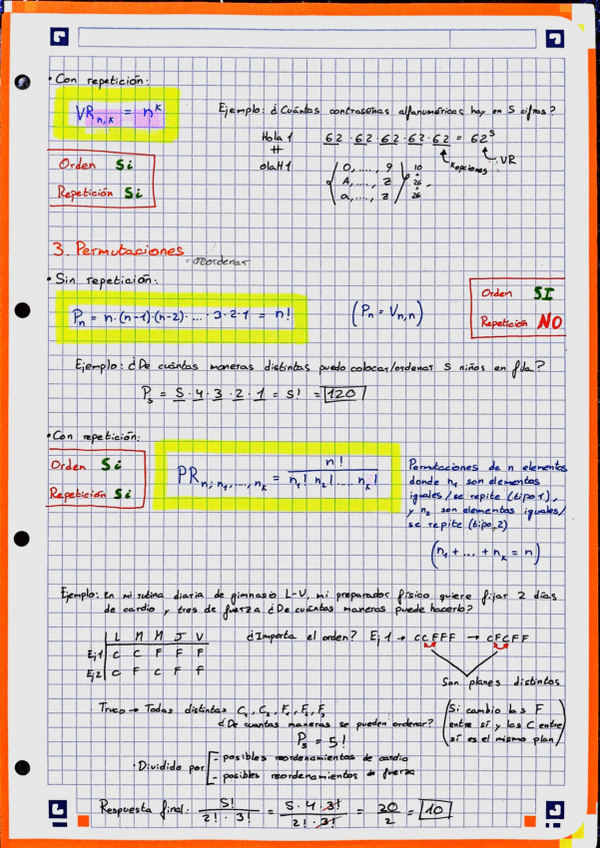 • Con repetición:
VR n,k = n^k
Ejemplo: ¿Cuántas contraseñas alfanuméricas hay en 5 cifras?
Hola1 62·62·62·62·62 = 62^5
#
olaH1
VR
opciones
0, ...., 9 10
A, ...., Z 26
a, ...., z 26
Orden Si
Repetición Si
3. Permutaciones
= reordenar
• Sin repetición:
Pn = n·(n-1)·(n-2)· ... ·3·2·1 = n!
(Pn = Vn,n)
Orden SI
Repetición NO
Ejemplo: ¿De cuántas maneras distintas puedo colocar/ordenar 5 niños en fila?
P5 = 5·4·3·2·1 = 5! = 120
• Con repetición:
Orden Si
Repetición Si
PR n; n1, ..., nk = n! / n1! n2! .... nk!
Permutaciones de n elementos
donde n1 son elementos
iguales/se repite (tipo 1),
y n2 son elementos iguales/
se repite (tipo 2)
(n1 + ... + nk = n)
Ejemplo: En mi rutina diaria de gimnasio L-V, mi preparador físico quiere fijar 2 días
de cardio y tres de fuerza ¿De cuántas maneras puede hacerlo?
L M M J V
Ej1 C C F F F
Ej2 C F C F F
¿Importa el orden? Ej1 → CCFFF → CFCFF
Son planes distintos
(Si cambio las F
entre sí y las C entre
sí es el mismo plan)
Truco → Todas distintas C1, C2, F1, F2, F3
¿De cuantas maneras se pueden ordenar?
P5 = 5!
• Dividido por - posibles reordenamientos de cardio
- posibles reordenamientos de fuerza
Respuesta final: 5! / 2!·3! = 5·4·3! / 2!·3! = 20 / 2 = 10